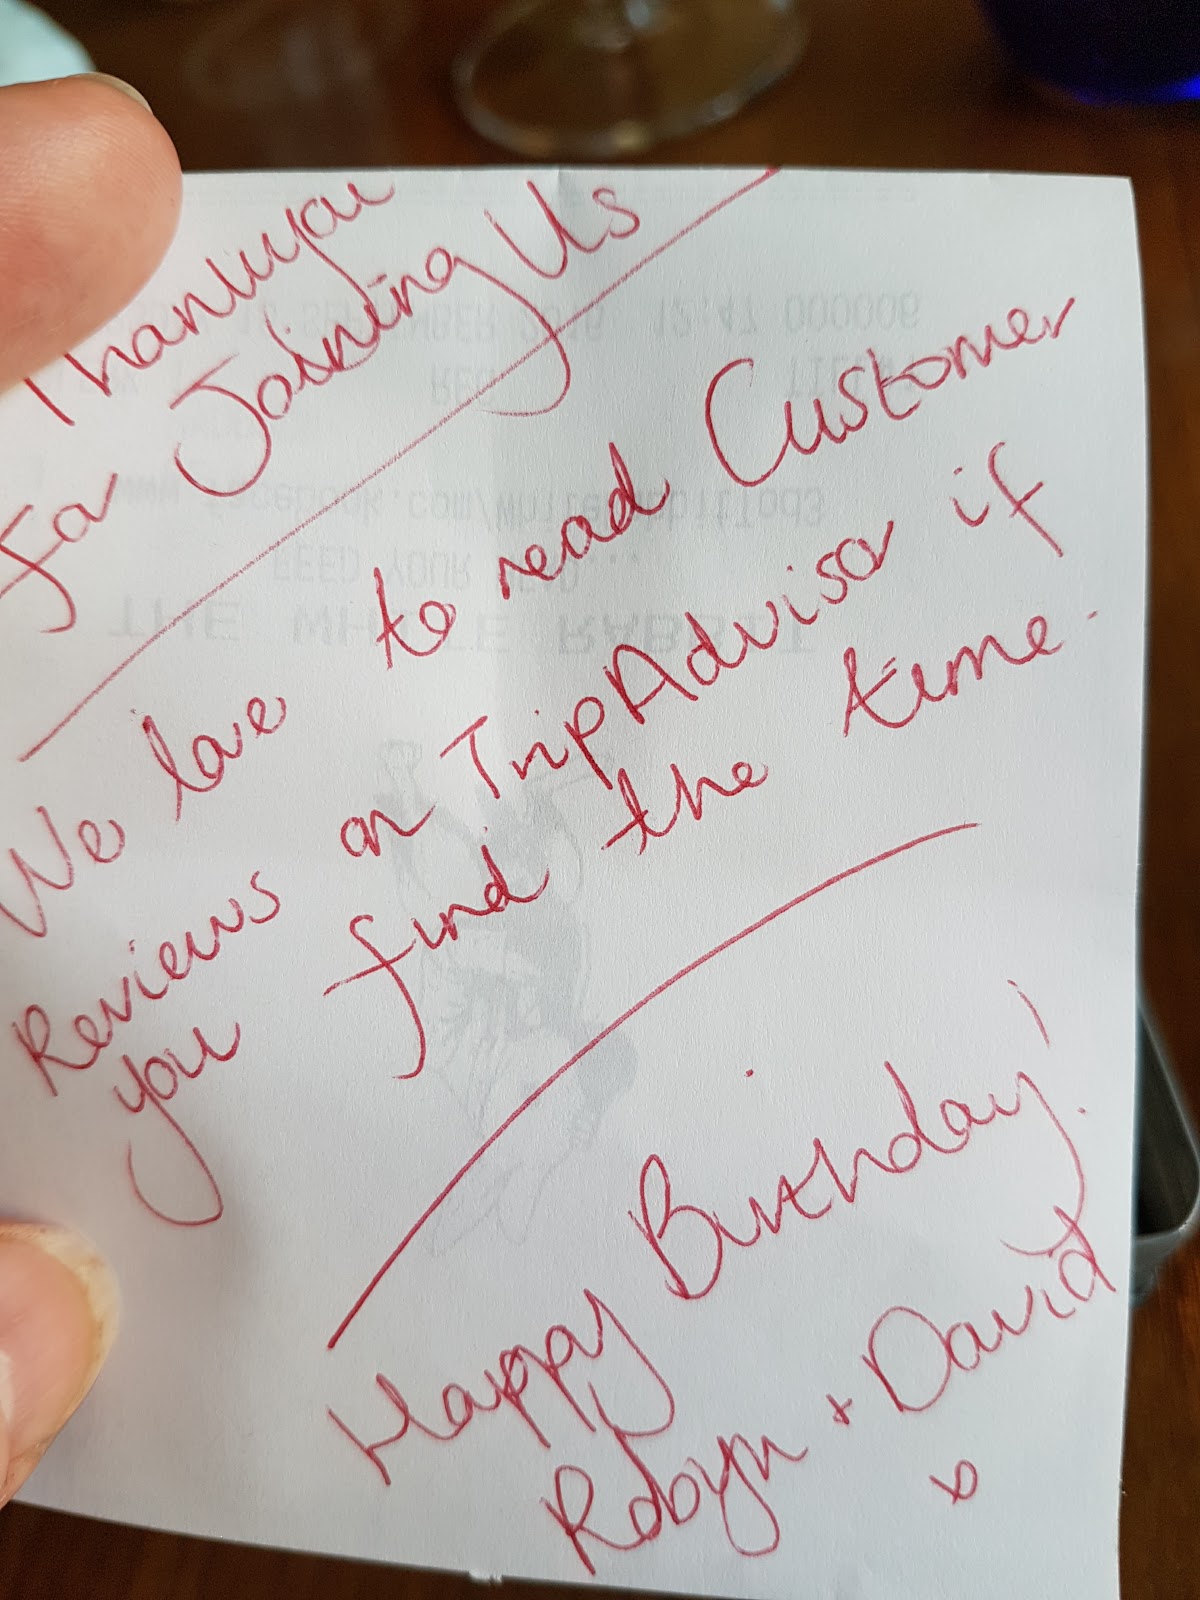 Thankyou
for Joining Us
We love to read Customer
Reviews on TripAdvisor if
you find the time.
Happy Birthday!
Robyn + David
x
SEPTEMBER 2016 12:47 000006
REG
www.facebook.com/whiterabbitTod3
FEED YOUR HEAD...
THE WHITE RABBIT